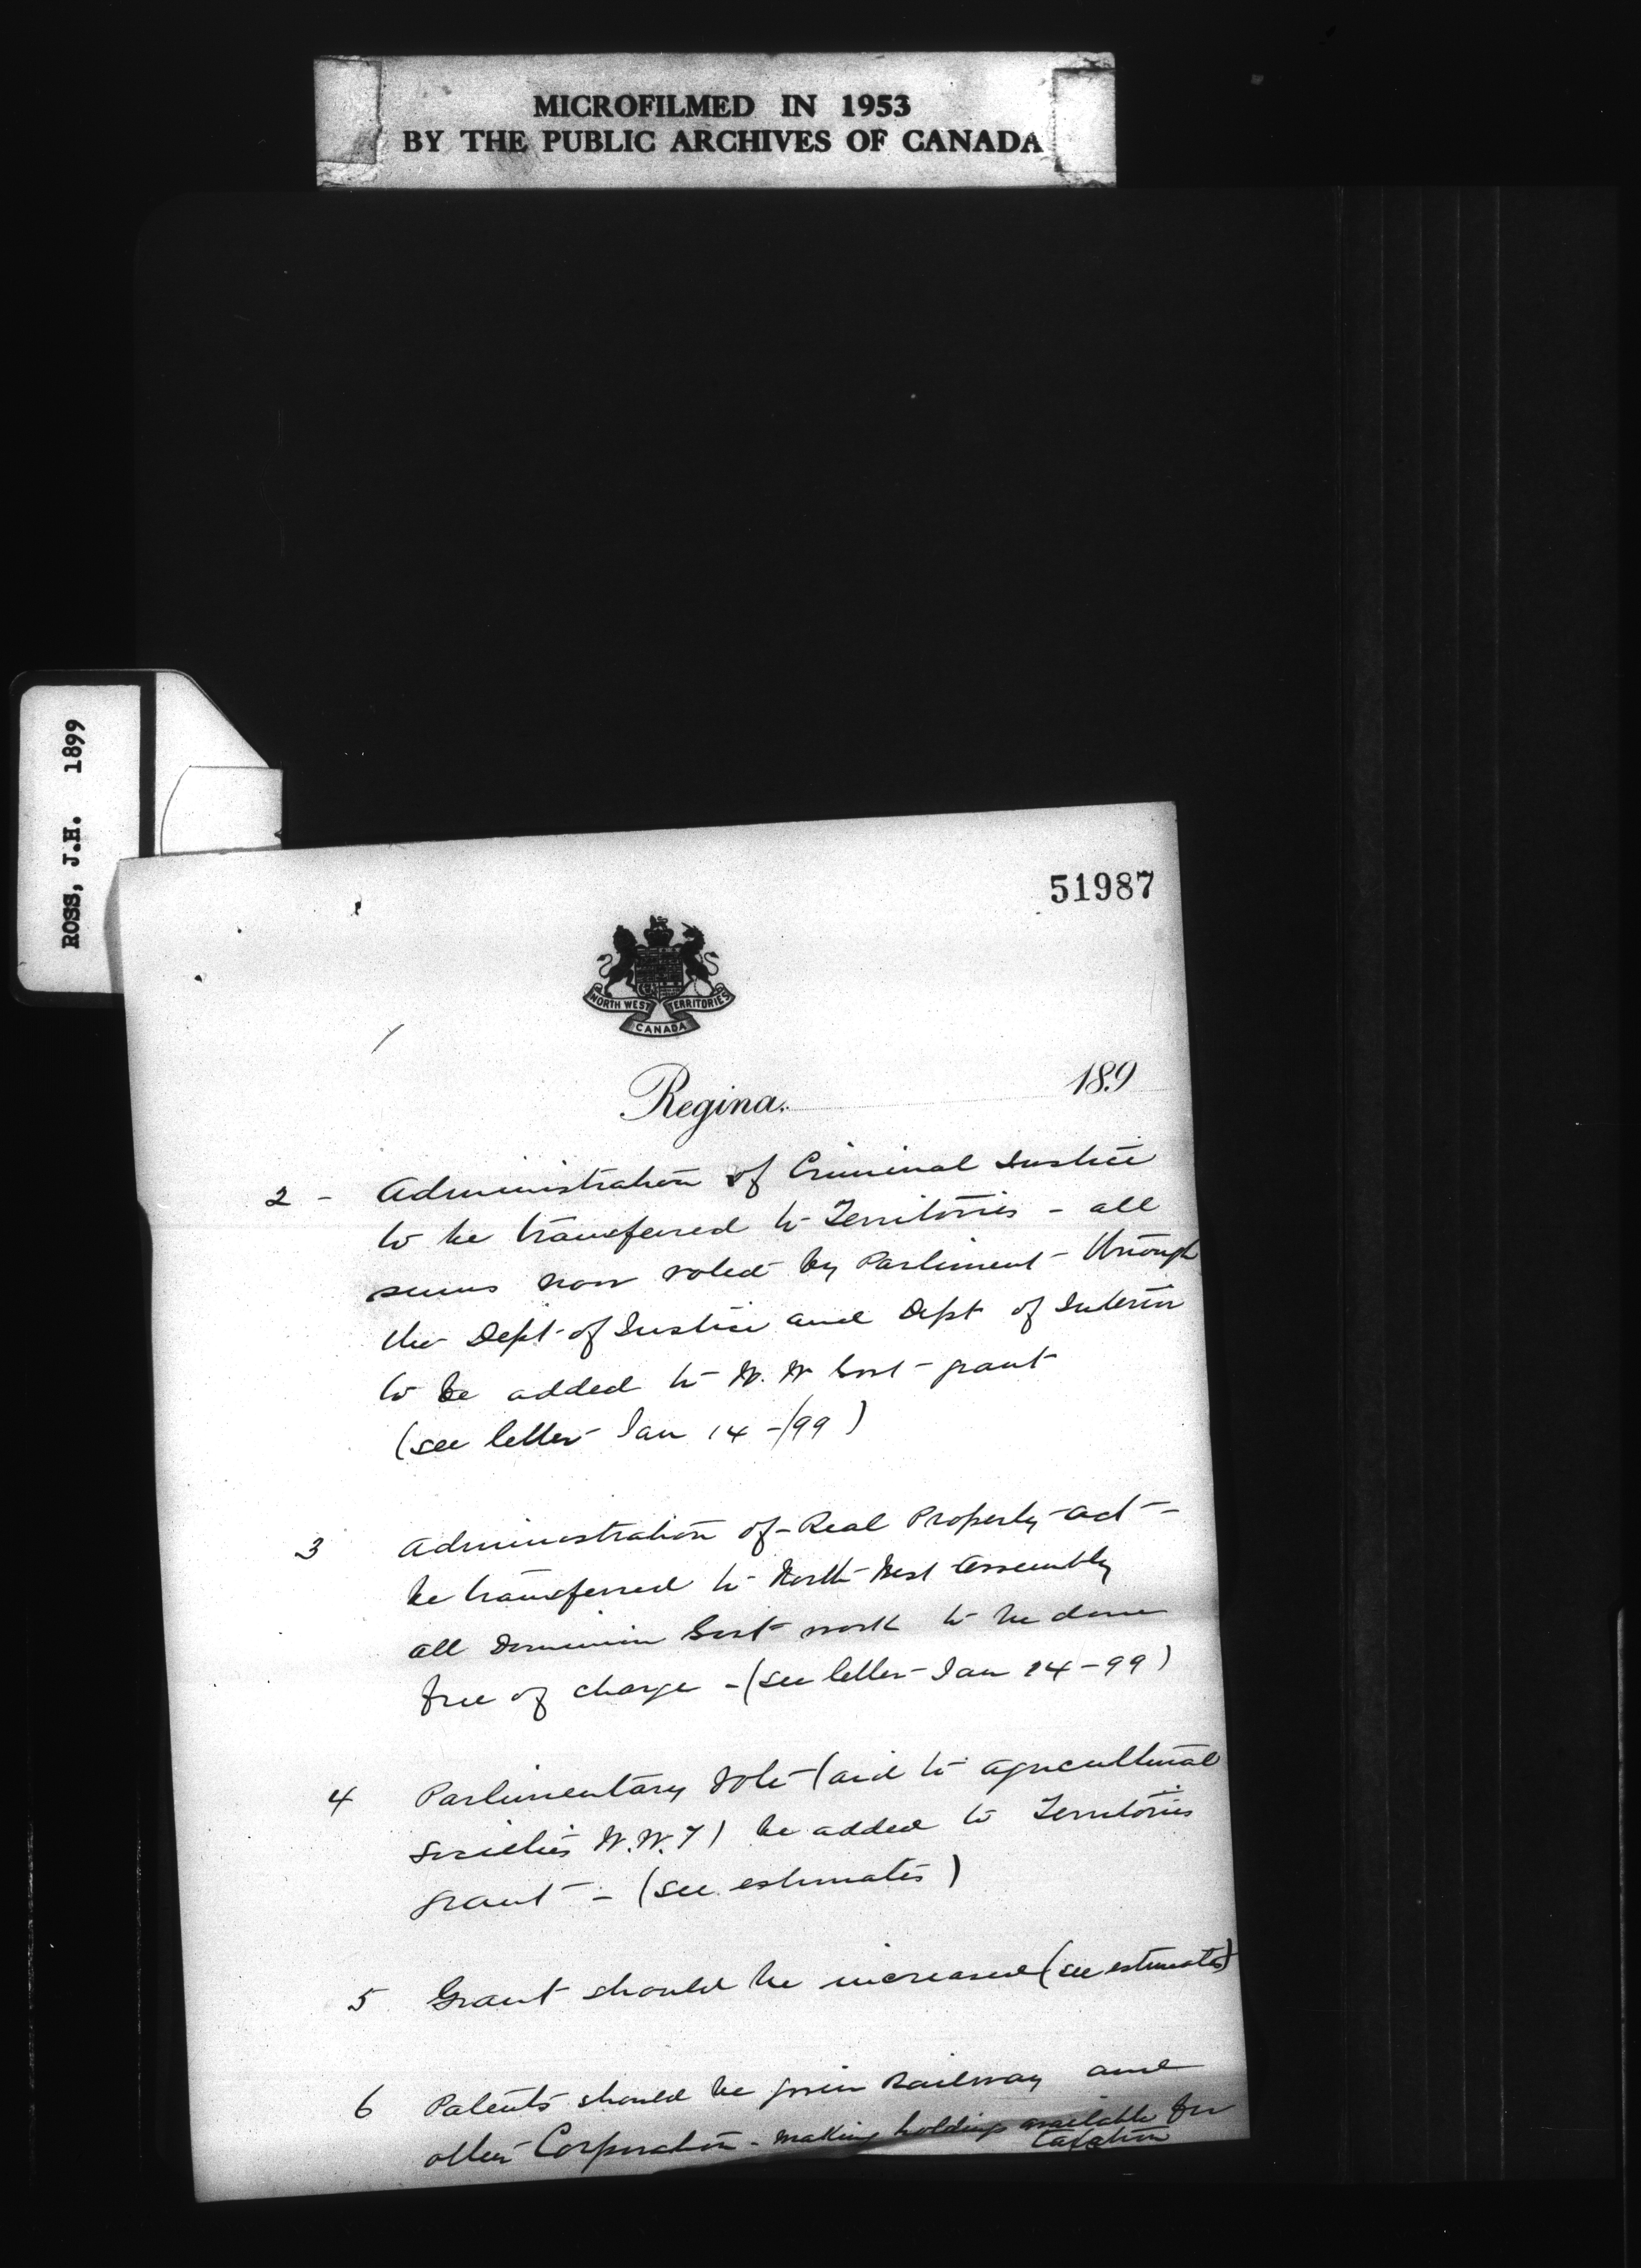 MICROFILMED IN 1953
BY THE PUBLIC ARCHIVES OF CANADA
ROSS, J.H. 1899
51987
NORTH WEST TERRITORIES
CANADA
Regina, 189
2 - Administration of Criminal Justice
to be transferred to Territories - all
sums now voted by Parliment through
the Dept of Justice and Dept of Interior
to be added to N. W Govt grant
(see letter Jan 14 -/99)
3 Administration of Real Property Act -
be transferred to North West Assembly
all Dominion Govt work to be done
free of charge - (see letter Jan 14 - 99)
4 Parlimentary Vote (aid to agricultural
societies N.W.T) be added to Territories
grant - (see estimates)
5 Grant should be increased (see estimates)
6 Patents should be given Railway and
other Corporation - making holdings available for
taxation